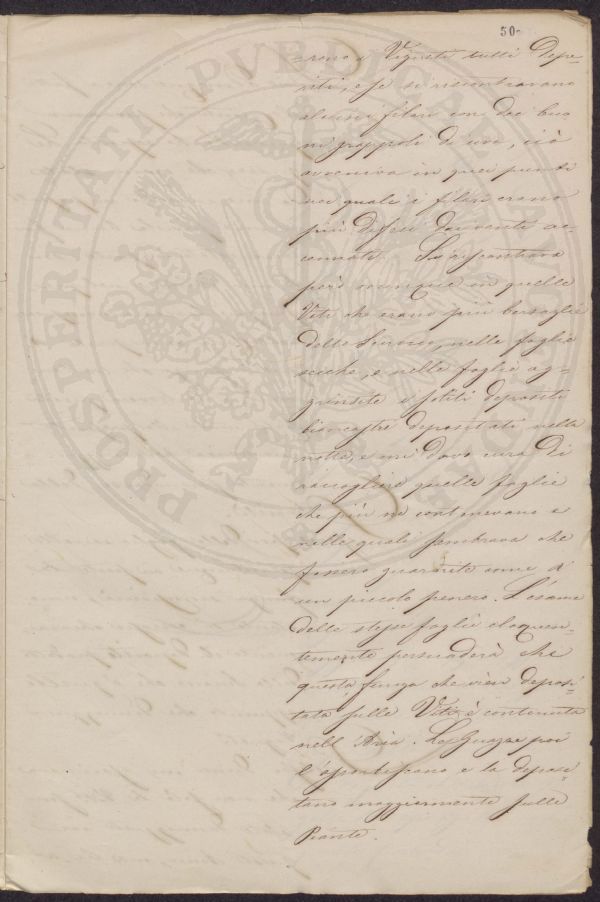 50
=rono i Vigneti tutti depe=
riti, e se si riscontravano
alcuni filari con dei buo
ni grappoli di uva, ciò
avveniva in quei punti
nei quali i filari erano
più difesi dai venti ac=
cennati. Si riscontrava
però ovunque in quelle
Viti che erano più bersaglio
dello Scirocco, nelle foglie
secche, e nelle foglie ag=
grinzite i soliti depositi
biancastri depositati nella
notte, e mi davo cura di
raccogliere quelle foglie
che più ne contenevano e
nelle quali sembrava che
fossero guarnite come d'
un piccolo penero. L'esame
delle stesse foglie eloquen=
temente persuaderà che
questa fanga che vien deposi=
tata sulle Viti è contenuta
nell'Aria. Le Guazze poi
l'apportiscano e la deposi=
tano maggiormente sulle
Piante.
PROSPERITATI PUBLICAE AUGENDAE